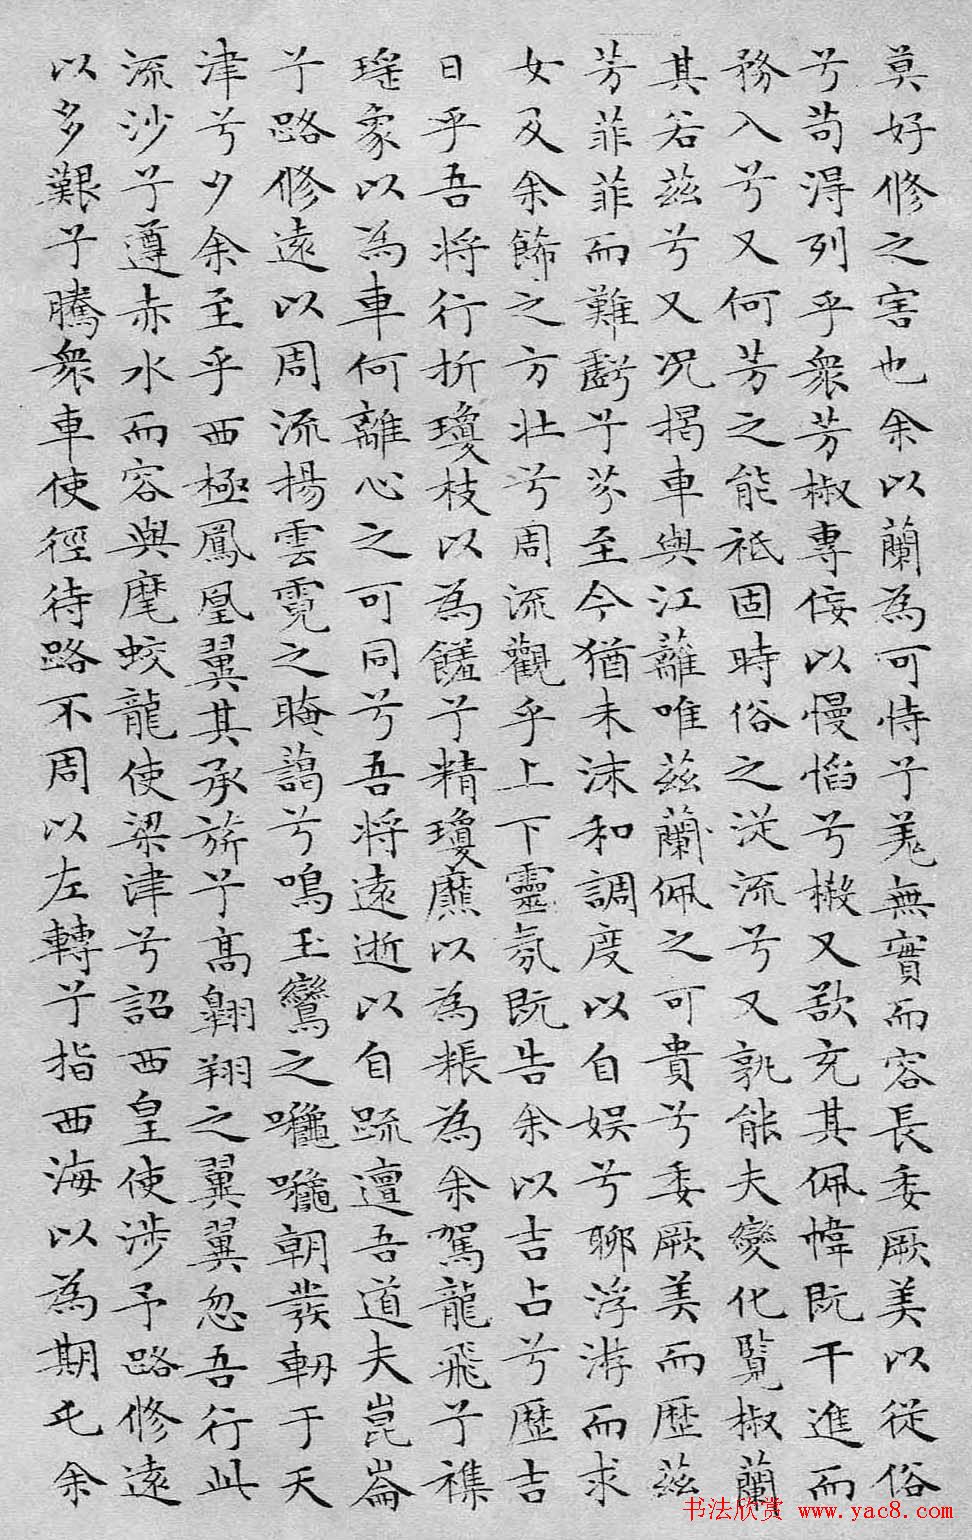 莫好修之害也余以蘭為可恃兮羌無實而容長委厥美以從俗
兮苟得列乎衆芳椒專佞以慢慆兮樧又欲充其佩幃既干進而
務入兮又何芳之能祗固時俗之從流兮又孰能夫變化覽椒蘭
其若茲兮又況揭車與江蘺唯茲蘭佩之可貴兮委厥美而歷茲
芳菲菲而難虧兮芬至今猶未沬和調度以自娛兮聊浮游而求
女及余飾之方壯兮周流觀乎上下靈氛既告余以吉占兮歷吉
日乎吾將行折瓊枝以為饈兮精瓊爢以為粻為余駕龍飛兮襍
瑤象以為車何離心之可同兮吾將遠逝以自疏邅吾道夫崑崙
兮路修遠以周流揚雲霓之晻藹兮鳴玉鸞之啾啾朝發軔于天
津兮夕余至乎西極鳳凰翼其承旂兮高翺翔之翼翼忽吾行此
流沙兮遵赤水而容與麾蛟龍使梁津兮詔西皇使涉予路修遠
以多艱兮騰衆車使徑待路不周以左轉兮指西海以為期屯余
书法欣赏 www.yac8.com